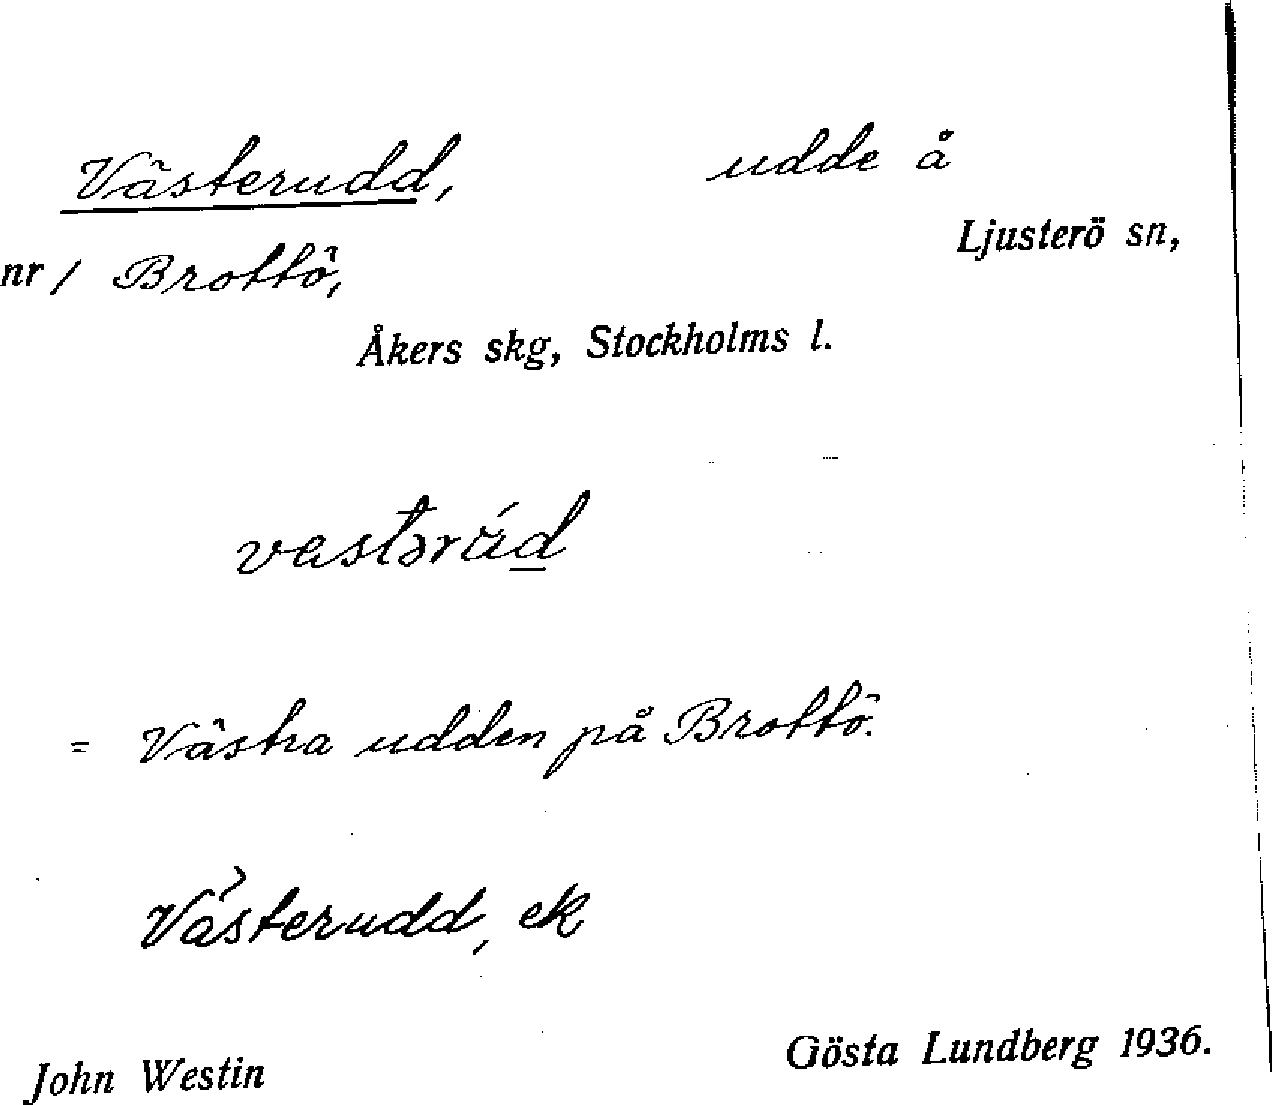 Västerudd, udde å
Ljusterö sn,
nr / Brottö,
Åkers skg, Stockholms l.
vastərúd
= Västra udden på Brottö.
Västerudd, ek
John Westin Gösta Lundberg 1936.